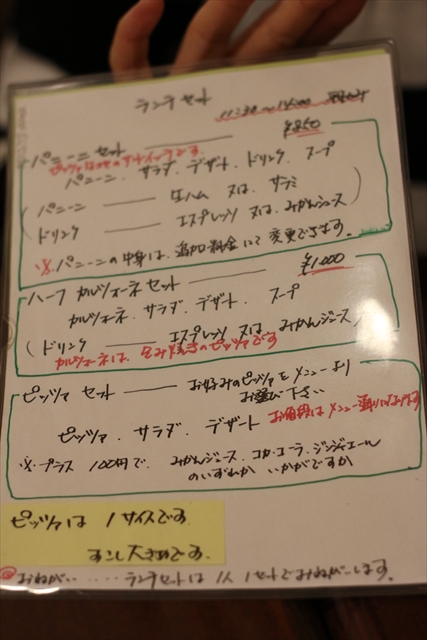 ランチセット 11:30〜14:00
パニーニ セット ¥850
ピッツァ生地のサンドイッチです
パニーニ、サラダ、デザート、ドリンク、スープ
パニーニ — 生ハム 又は、サラミ
ドリンク — エスプレッソ 又は、みかんジュース
※パニーニの中身は、追加料金にて変更できます。
ハーフ カルツォーネ セット ¥1,000
カルツォーネ、サラダ、デザート、スープ
ドリンク — エスプレッソ 又は みかんジュース
カルツォーネは、包み焼きのピッツァです
ピッツァ セット — お好みのピッツァをメニューより
お選び下さい
ピッツァ、サラダ、デザート お値段はメニュー通りになります
※プラス 100円で、みかんジュース、コカ・コーラ、ジンジャエール
のいずれか いかがですか
ピッツァは 1サイズです
すこし大きめです.
おねがい..... ランチセットは 1人 1セットでおねがいします。